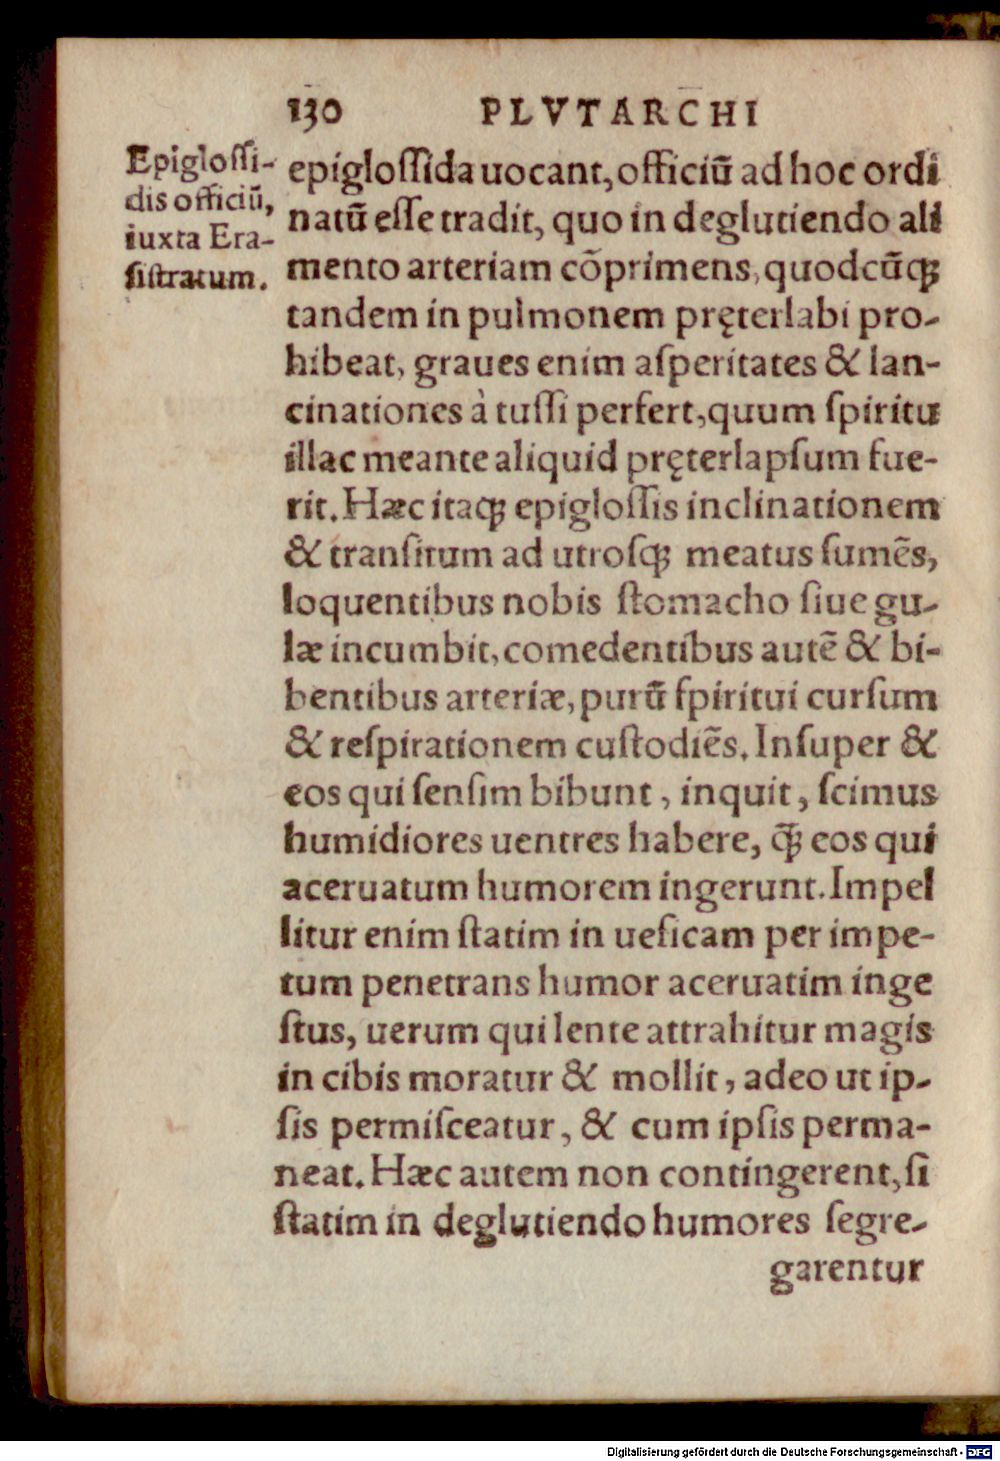 130 PLVTARCHI
Epigloſſi-
dis officiū,
iuxta Era-
ſiſtratum.
epigloſſida uocant, officiū ad hoc ordi
natū eſſe tradit, quo in deglutiendo ali
mento arteriam cōprimens, quodcūqꝫ
tandem in pulmonem pręterlabi pro-
hibeat, graues enim aſperitates & lan-
cinationes à tuſſi perfert, quum ſpiritu
illac meante aliquid pręterlapſum fue-
rit. Hæc itaqꝫ epigloſſis inclinationem
& tranſitum ad utroſqꝫ meatus ſumēs,
loquentibus nobis ſtomacho ſiue gu-
læ incumbit, comedentibus autē & bi-
bentibus arteriæ, purū ſpiritui curſum
& reſpirationem cuſtodiēs. Inſuper &
eos qui ſenſim bibunt, inquit, ſcimus
humidiores uentres habere, q̄ꝫ eos qui
aceruatum humorem ingerunt. Impel
litur enim ſtatim in ueſicam per impe-
tum penetrans humor aceruatim inge
ſtus, uerum qui lente attrahitur magis
in cibis moratur & mollit, adeo ut ip-
ſis permiſceatur, & cum ipſis perma-
neat. Hæc autem non contingerent, ſi
ſtatim in deglutiendo humores ſegre-
garentur
Digitalisierung gefördert durch die Deutsche Forschungsgemeinschaft - DFG